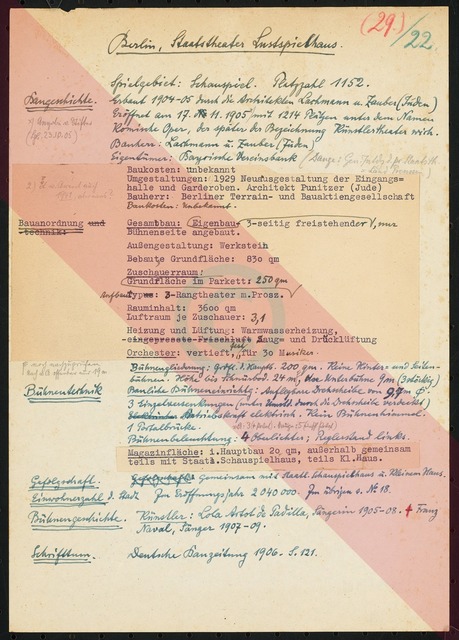 (29)
/22.
Berlin, Staatstheater Lustspielhaus.
Spielgebiet: Schauspiel. Platzzahl 1152.
Baugeschichte. Erbaut 1904-05 durch die Architekten Lachmann u. Zauber (Juden)
Eröffnet am 17. 11. 1905 mit 1214 Plätzen unter dem Namen
Komische Oper, der später der Bezeichnung Künstlertheater wich.
Bauherr: Lachmann u. Zauber (Juden)
Eigentümer: Bayrische Vereinsbank
Baukosten: unbekannt
Umgestaltungen: 1929 Neuausgestaltung der Eingangs-
halle und Garderoben. Architekt Punitzer (Jude)
Bauherr: Berliner Terrain- und Bauaktiengesellschaft
Baukosten: unbekannt.
Bauanordnung und -technik: Gesamtbau: Eigenbau 3-seitig freistehender, nur
Bühnenseite angebaut.
Außengestaltung: Werkstein
Bebaute Grundfläche: 830 qm
Zuschauerraum:
Grundfläche im Parkett: 250 qm
Aufbau typus: 3-Rangtheater m.Prosz.
Rauminhalt: 3600 qm
Luftraum je Zuschauer: 3,1
Heizung und Lüftung: Warmwasserheizung,
eingepresste Frischluft Saug- und Drücklüftung
Orchester: vertieft, für 30 Musiker.
Bühnentechnik Bühnengliederung: Größe d. Hauptb. 200 qm. Keine Hinter- und Seiten-
bühnen. Höhe bis Schnürbod. 24 m, Unterbühne 9m (3stöckig)
Bauliche Bühneneinrichtg: Auflegbare Drehscheibe von
Betriebskraft elektrisch. Kein Bühnenhimmel.
1 Portalbrücke.
Bühnenbeleuchtung: 4 Oberlichter; Reglerstand links.
Magazinfläche: i.Hauptbau 20 qm, außerhalb gemeinsam
teils mit Staatl.Schauspielhaus, teils Kl.Haus.
Gefolgschaft. Gemeinsam mit Staatl Schauspielhaus u. Kleinem Haus.
Einwohnerzahl d. Stadt Im Eröffnungsjahr 2 040 000. Im übrigen s. № 18.
Bühnengeschichte. Künstler: Lola Artot de Padilla, Sängerin 1905-08. + Franz
Naval, Sänger 1907-09.
Schrifttum. Deutsche Bauzeitung 1906. S. 121.